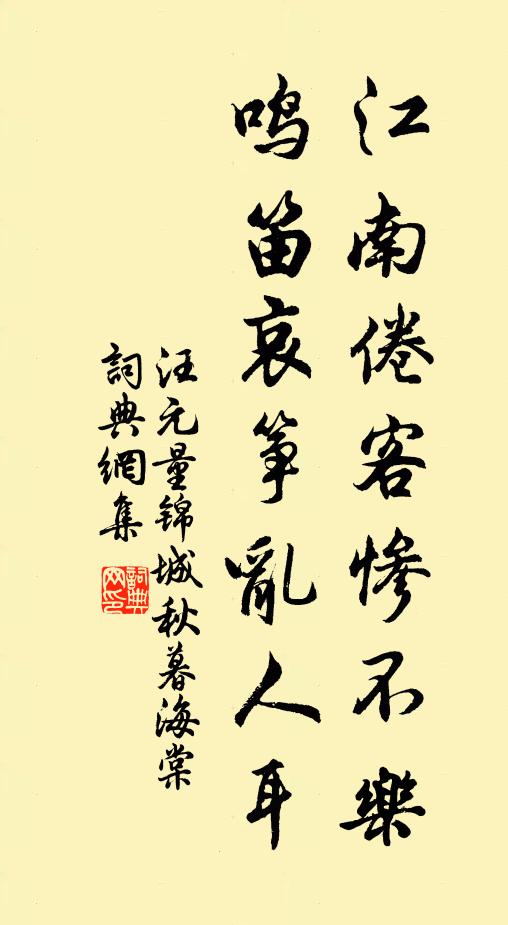 江南倦客慘不樂
鳴笛哀箏亂人耳
汪元量錦城秋暮海棠
詞典網集
詞典網印